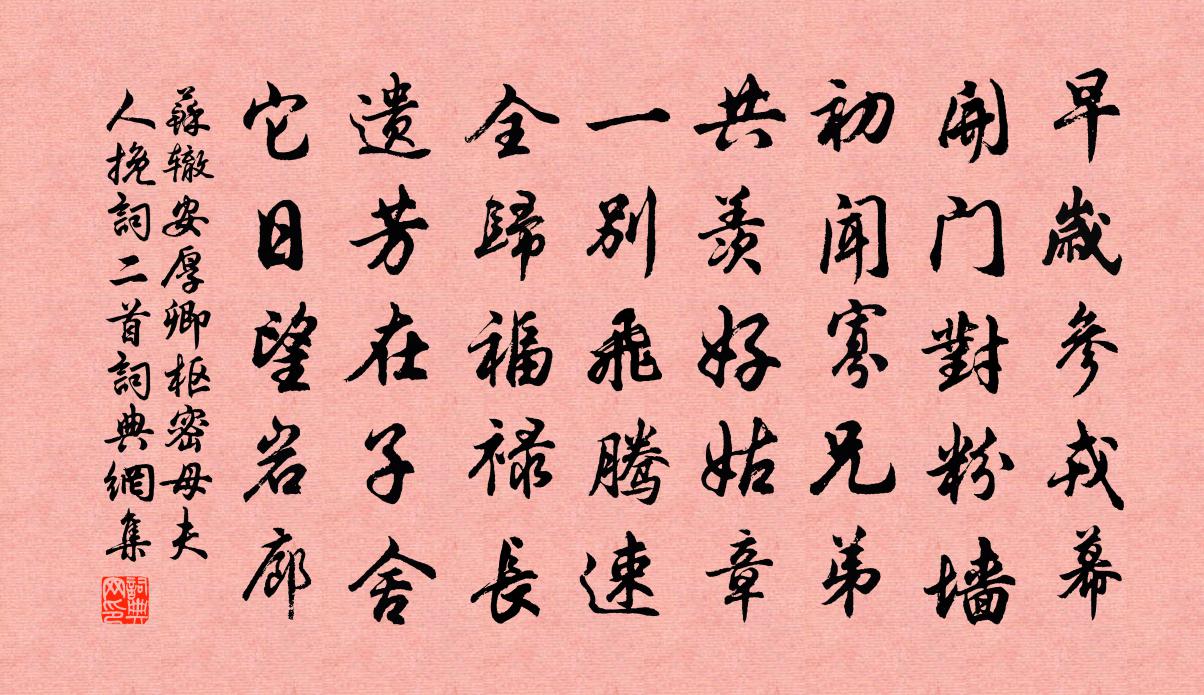 早歲參戎幕
開门對粉墙
初聞寡兄弟
共羡好姑章
一别飛腾速
全歸福禄長
遗芳在子舍
它日望岩廊
蘇辙安厚卿枢密母夫
人挽詞二首詞典網集
詞典网印